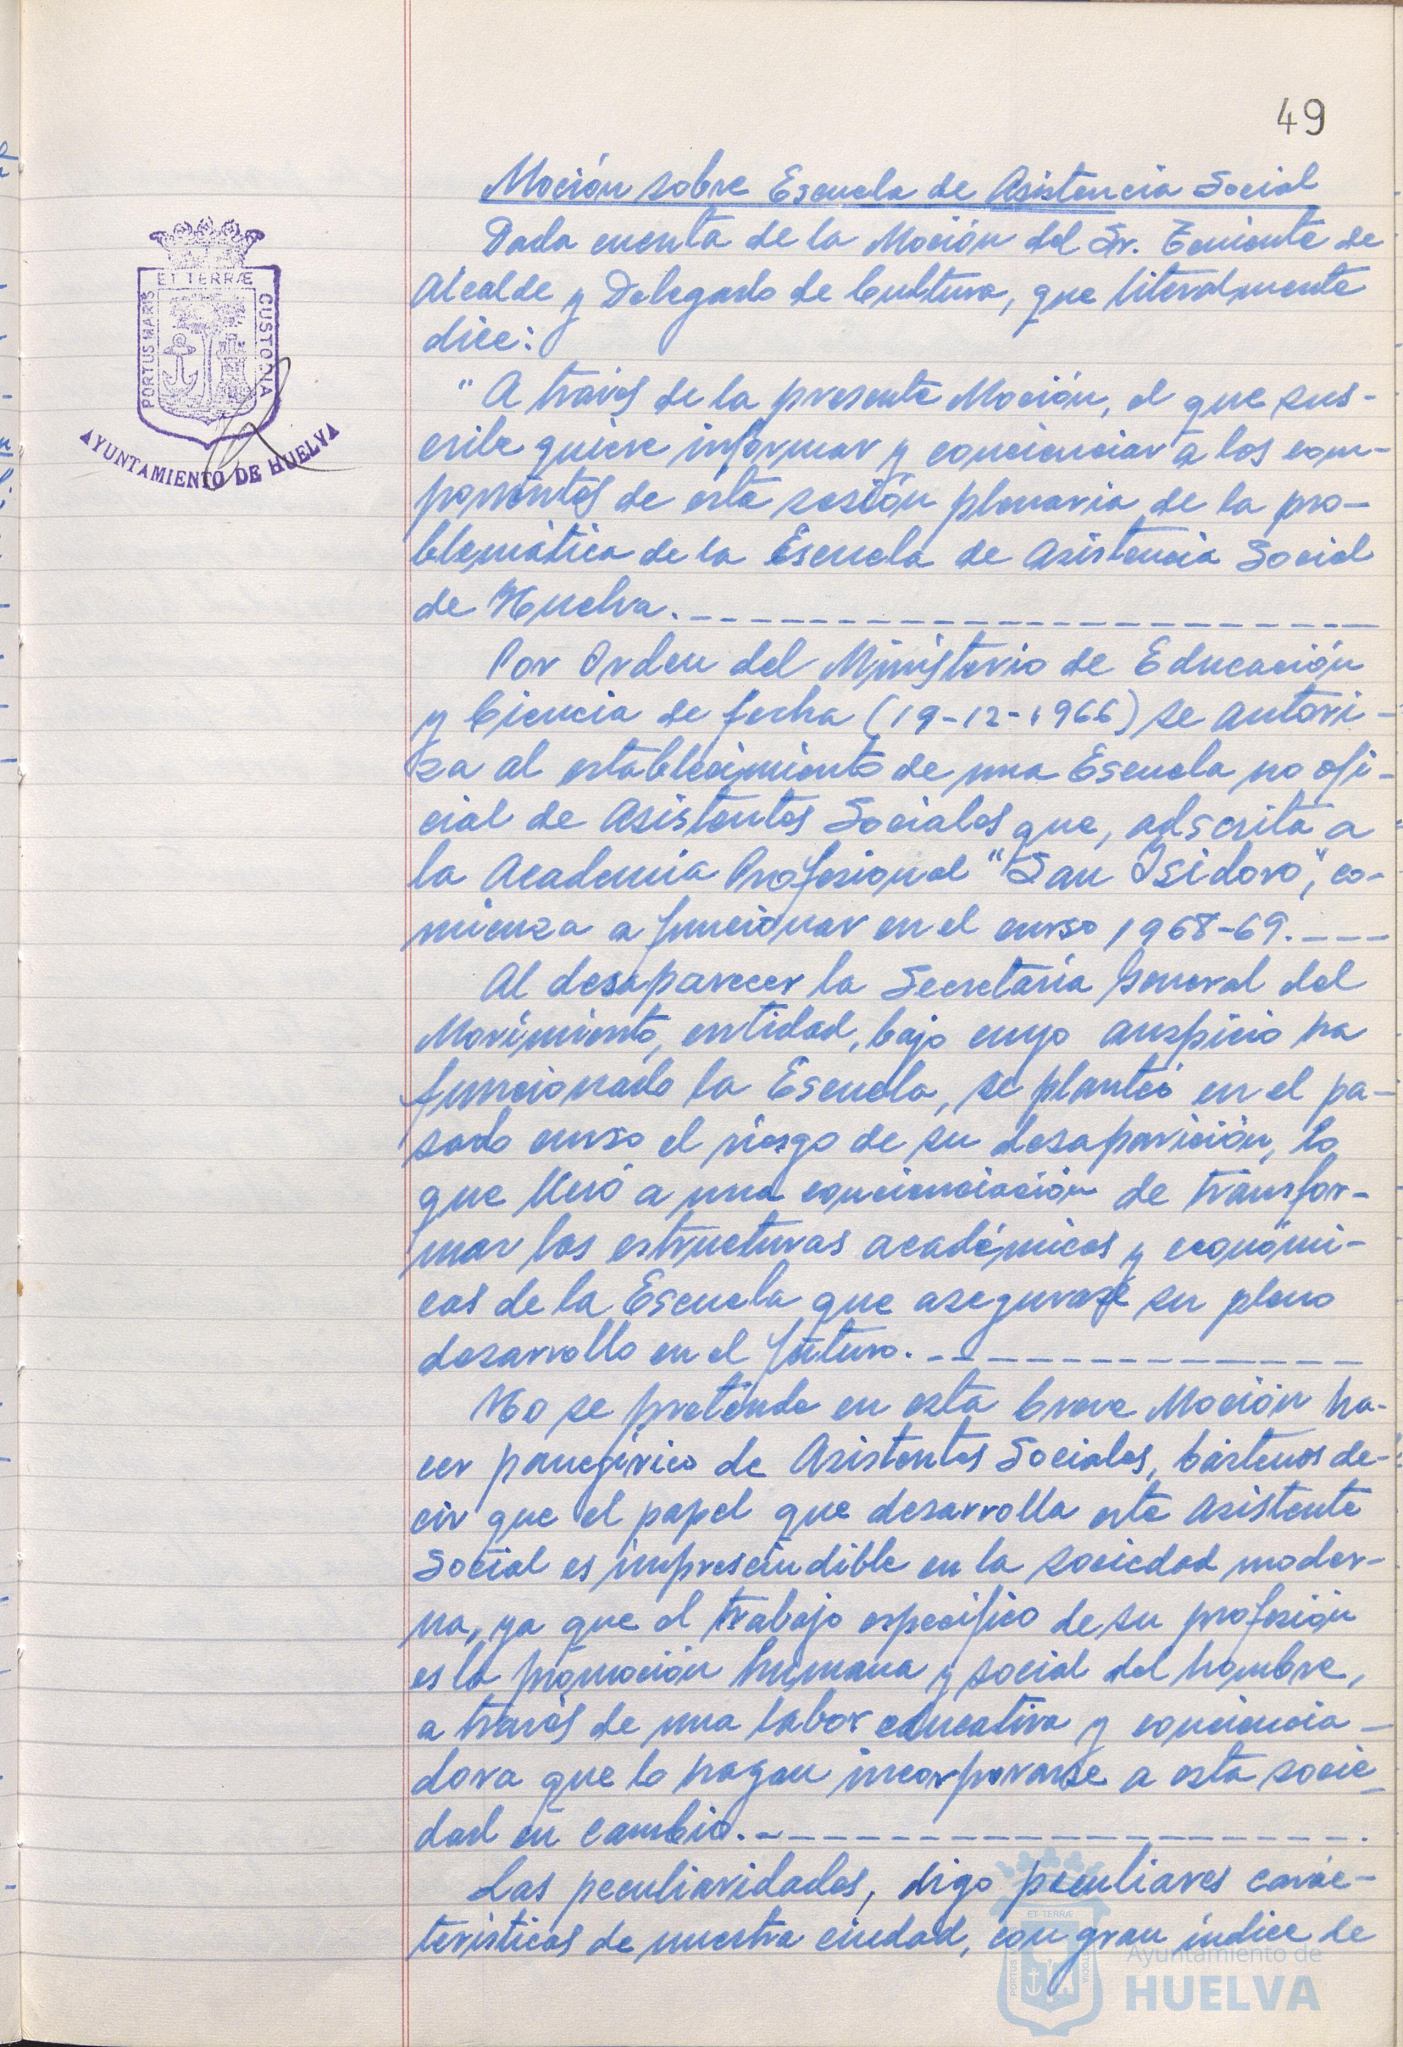 49
Moción sobre Escuela de Asistencia Social
Dada cuenta de la Moción del Sr. Teniente de
Alcalde y Delegado de Cultura, que literalmente
dice:
" A través de la presente Moción, el que sus-
cribe quiere informar y concienciar a los com-
ponentes de esta sesión plenaria de la pro-
blemática de la Escuela de Asistencia Social
de Huelva.
Por Orden del Ministerio de Educación
y Ciencia de fecha (19-12-1966) se autori-
za al establecimiento de una Escuela no ofi-
cial de Asistentes Sociales que, adscrita a
la Academia Profesional "San Isidoro", co-
mienza a funcionar en el curso 1968-69.
Al desaparecer la Secretaría General del
Movimiento, entidad, bajo cuyo auspicio ha
funcionado la Escuela, se planteó en el pa-
sado curso el riesgo de su desaparición, lo
que llevó a una concienciación de transfor-
mar las estructuras académicas y económi-
cas de la Escuela que asegurase su pleno
desarrollo en el futuro.
No se pretende en esta breve Moción ha-
cer panegírico de Asistentes Sociales, bástenos de-
cir que el papel que desarrolla este Asistente
Social es imprescindible en la sociedad moder-
na, ya que el trabajo específico de su profesión
es la promoción humana y social del hombre,
a través de una labor educativa y conciencia-
dora que lo hagan incorporarse a esta socie-
dad en cambio.
Las peculiaridades, digo peculiares carac-
terísticas de nuestra ciudad, con gran índice de
PORTUS MARIS
ET TERRÆ
CUSTODIA
AYUNTAMIENTO DE HUELVA
Ayuntamiento de
HUELVA